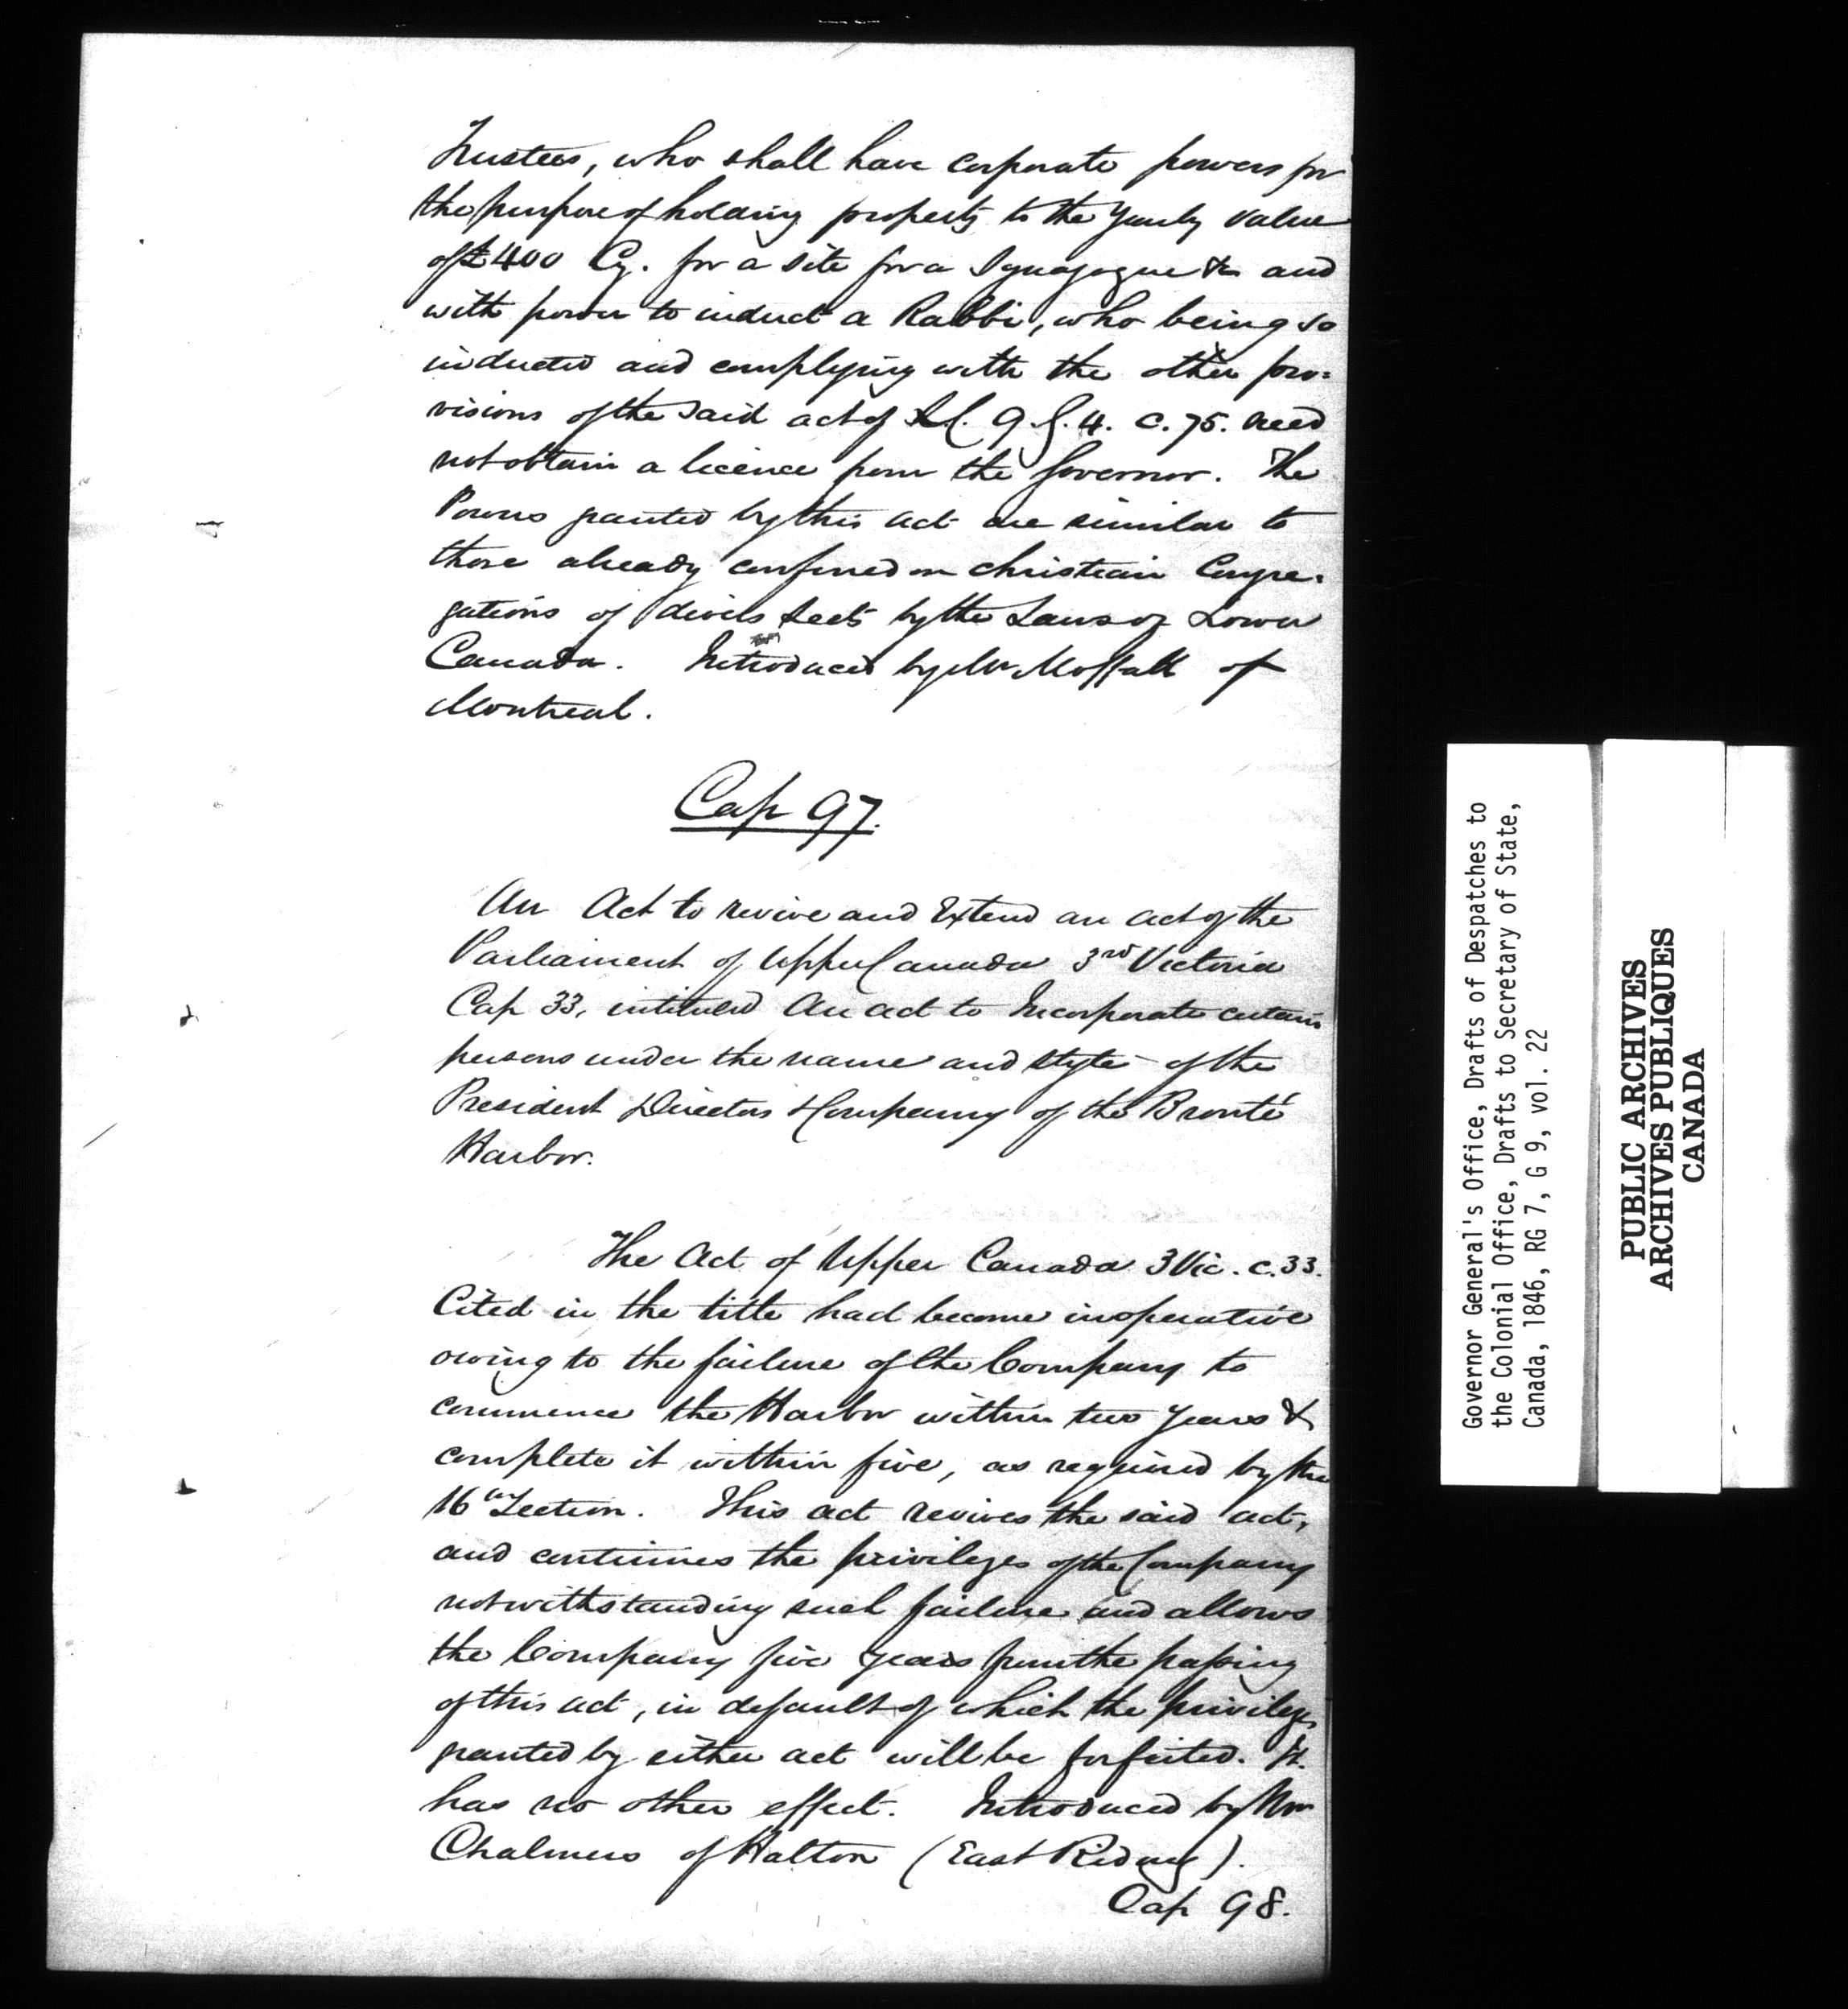 Trustees, who shall have corporate powers for
the purpose of holding property to the Yearly value
of £400 Cy. for a site for a Synagogue &c and
with power to induct a Rabbi, who being so
inducted and complying with the other pro-
visions of the said act of L.C. 9.G.4. c.75. need
not obtain a licence from the Governor. The
Powers granted by this act are similar to
those already conferred on Christian Congre-
gations of divers Sects by the Laws of Lower
Canada. Introduced by Mr Moffatt of
Montreal.
Cap 97.
An Act to revive and Extend an act of the
Parliament of Upper Canada 3rd Victoria
Cap 33, intituled An act to Incorporate certain
persons under the name and style of the
President Directors & Company of the Bronté
Harbor.
The Act of Upper Canada 3 Vic. c.33.
Cited in the title had become inoperative
owing to the failure of the Company to
commence the Harbor within two Years &
complete it within five, as required by the
16th Section. This act revives the said act,
and continues the privileges of the Company
notwithstanding such failure and allows
the Company five years from the passing
of this act, in default of which the privileges
granted by either act will be forfeited. It
has no other effect. Introduced by Mr
Chalmers of Halton (East Riding).
Cap 98.
Governor General's Office, Drafts of Despatches to
the Colonial Office, Drafts to Secretary of State,
Canada, 1846, RG 7, G 9, vol. 22
PUBLIC ARCHIVES
ARCHIVES PUBLIQUES
CANADA